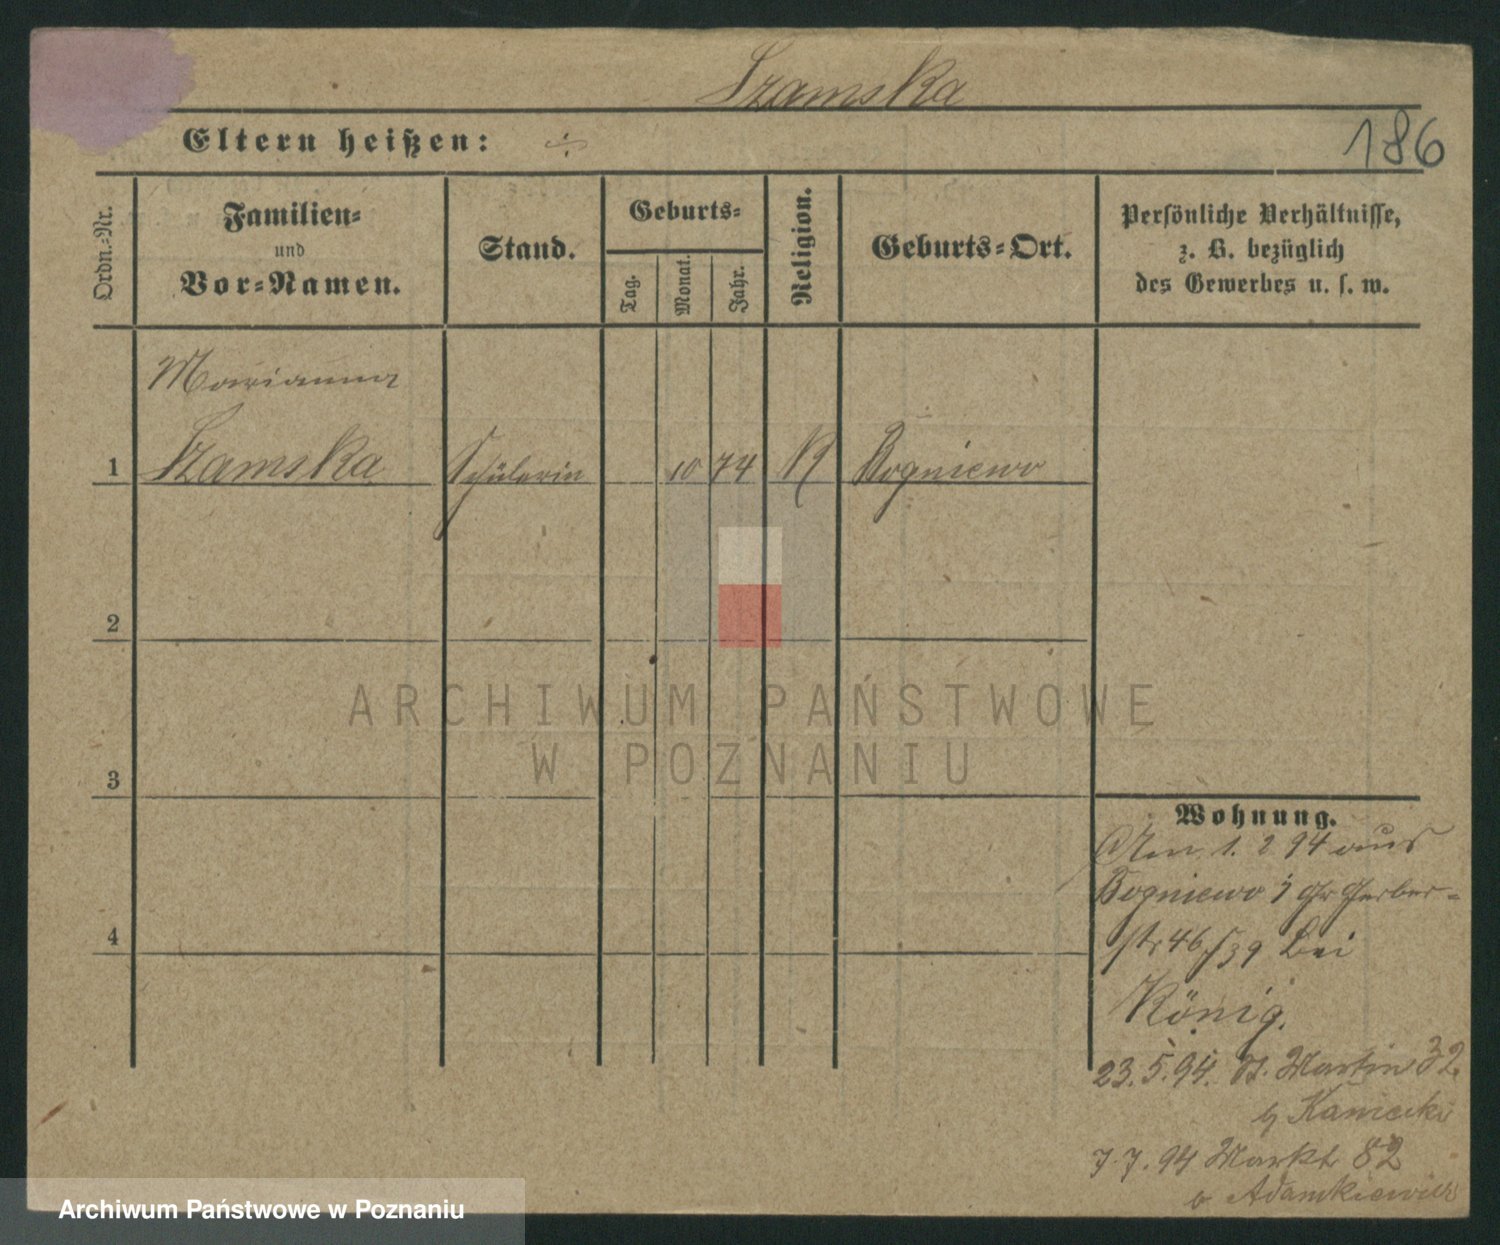 Szamska
186
Eltern heißen: ÷
Ordn.-Nr.
Familien-
und
Vor-Namen.
Stand.
Geburts-
Tag.
Monat.
Jahr.
Religion.
Geburts-Ort.
Persönliche Verhältnisse,
z. B. bezüglich
des Gewerbes u. s. w.
Marianna
1 Szamska Schülerin 10 74 K Bogniewo
2
3
4
Wohnung.
Am 1. 2 94 aus
Bogniewo Gr Gerber-
str 46/39 bei
König.
23. 5. 94. St. Martin 32.
b Kaniecki
7. 7. 94 Markt 82
b. Adamkiewicz
ARCHIWUM PAŃSTWOWE
W POZNANIU
Archiwum Państwowe w Poznaniu